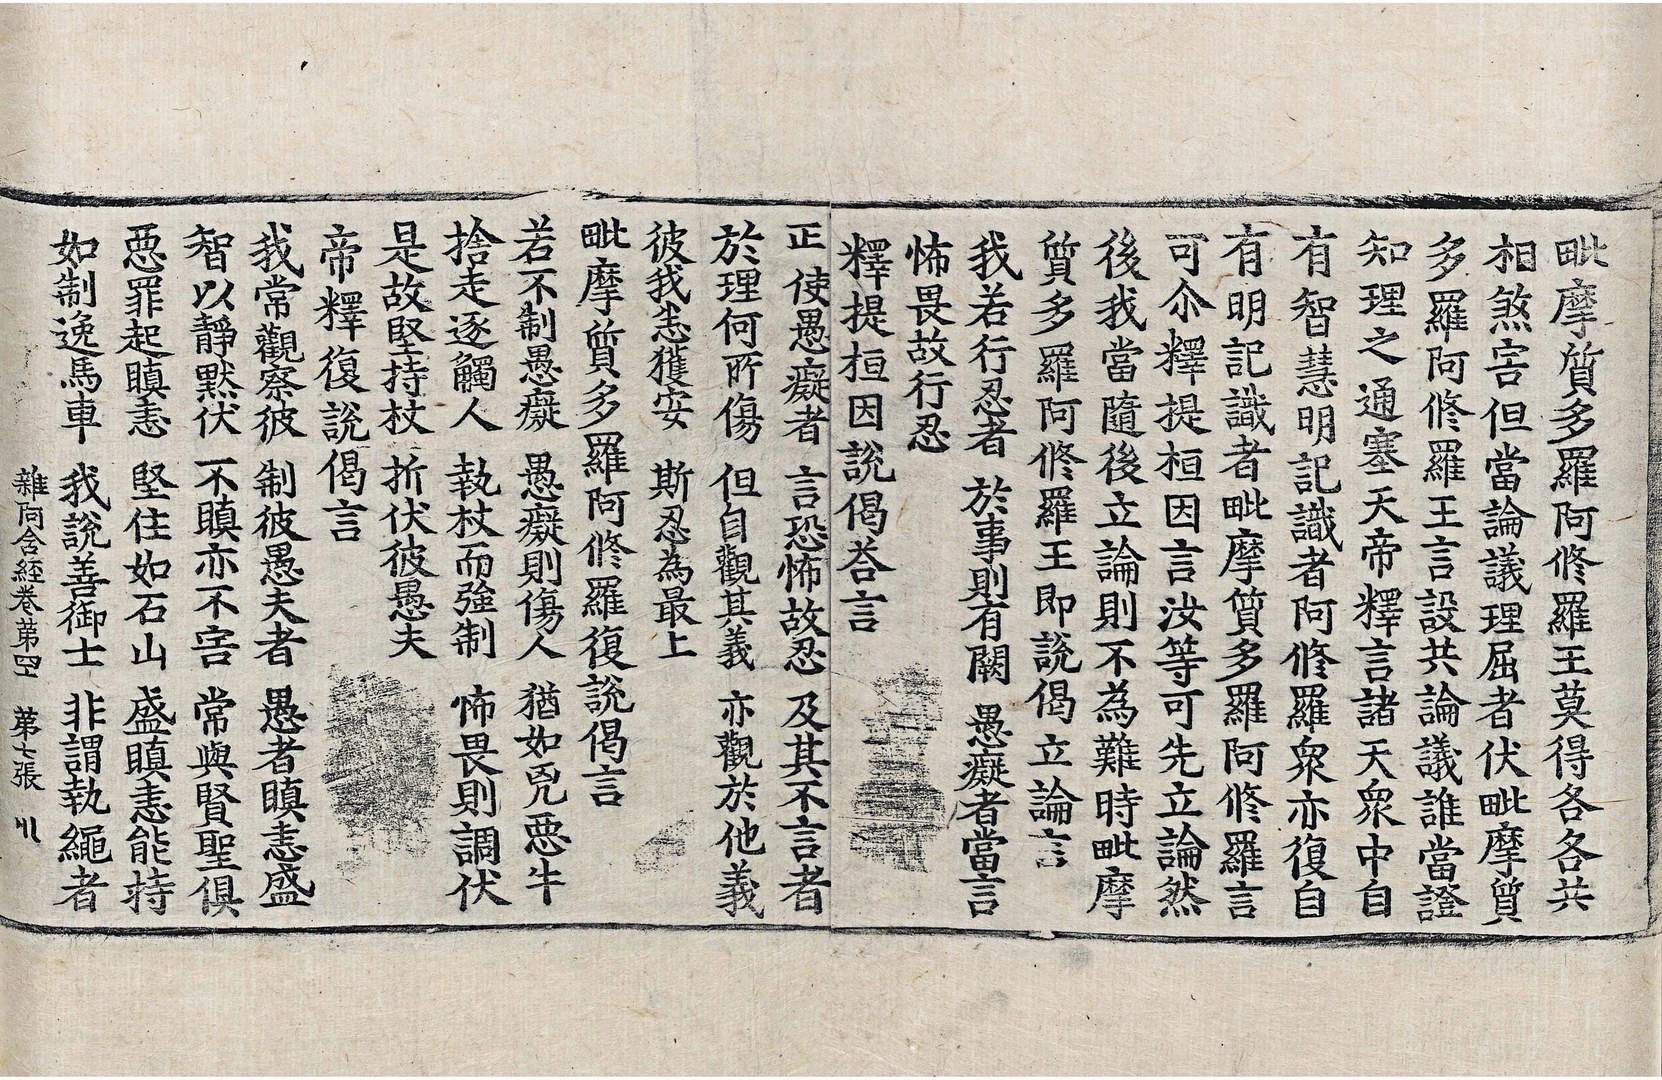 毗摩質多羅阿修羅王莫得各各共
相煞害但當論議理屈者伏毗摩質
多羅阿修羅王言設共論議誰當證
知理之通塞天帝釋言諸天衆中自
有智慧明記識者阿修羅衆亦復自
有明記識者毗摩質多羅阿修羅言
可尒釋提桓因言汝等可先立論然
後我當隨後立論則不為難時毗摩
質多羅阿修羅王即說偈立論言
我若行忍者 於事則有闕 愚癡者當言
怖畏故行忍
釋提桓因說偈荅言
正使愚癡者 言恐怖故忍 及其不言者
於理何所傷 但自觀其義 亦觀於他義
彼我悉獲安 斯忍為最上
毗摩質多羅阿修羅復說偈言
若不制愚癡 愚癡則傷人 猶如兕惡牛
捨走逐觸人 執杖而強制 怖畏則調伏
是故堅持杖 折伏彼愚夫
帝釋復說偈言
我常觀察彼 制彼愚夫者 愚者瞋恚盛
智以靜默伏 不瞋亦不害 常與賢聖俱
惡罪起瞋恚 堅住如石山 盛瞋恚能持
如制逸馬車 我說善御士 非謂執繩者
雜阿含經卷第四十 第七張